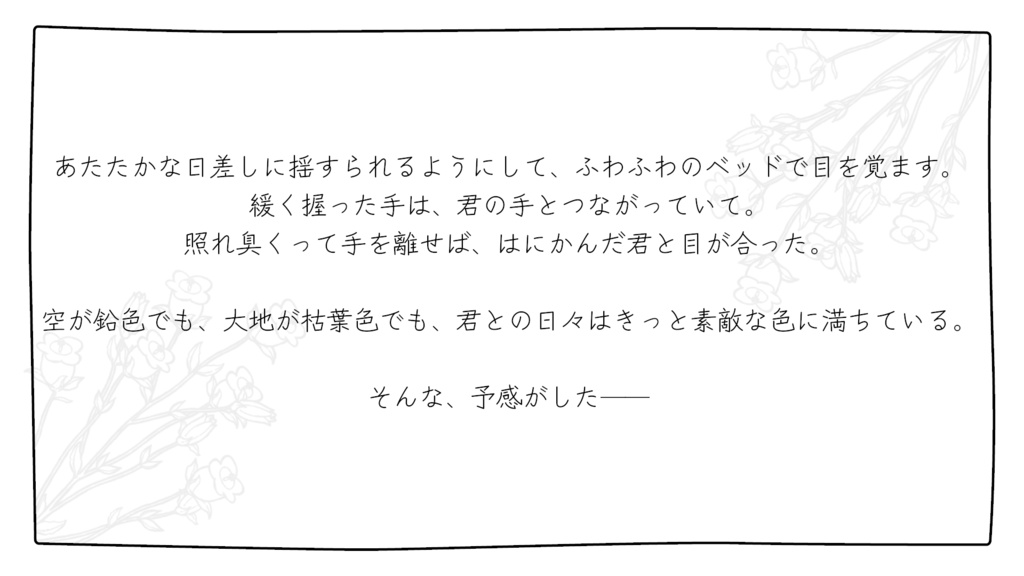 あたたかな日差しに揺すられるようにして、ふわふわのベッドで目を覚ます。
緩く握った手は、君の手とつながっていて。
照れ臭くって手を離せば、はにかんだ君と目が合った。
空が鉛色でも、大地が枯葉色でも、君との日々はきっと素敵な色に満ちている。
そんな、予感がした――